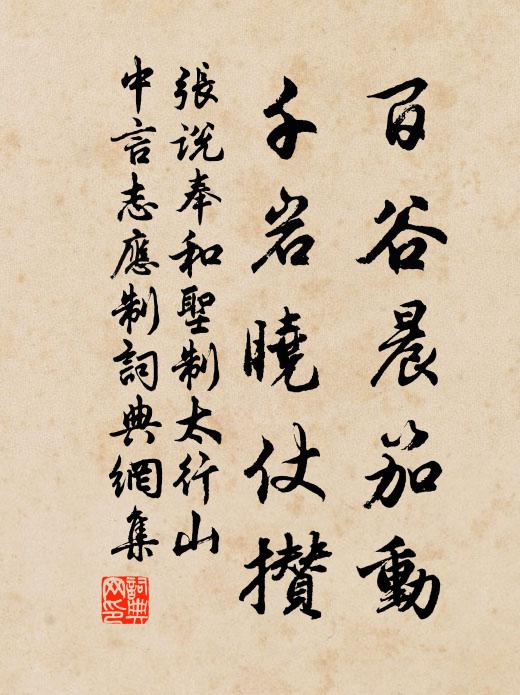 百谷晨笳動
千岩曉仗攢
張說奉和聖制太行山
中言志應制詞典網集
詞典
网印